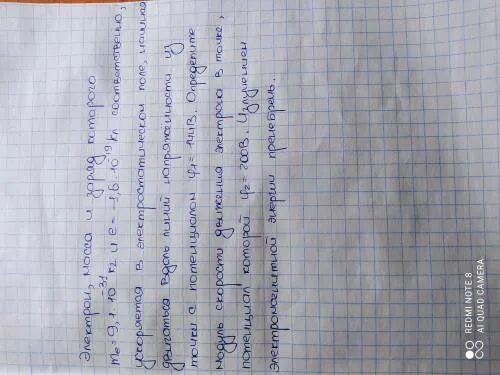 Электрон, масса и заряд которого
mе = 9,1 · 10⁻³¹ кг и е = -1,6 · 10⁻¹⁹ Кл соответственно,
ускоряется в электростатическом поле, начиная
двигаться вдоль линий напряжённости из
точки с потенциалом φ₁ = 144В. Определите
модуль скорости движения электрона в точке,
потенциал которой φ₂ = 200В. Излучением
электромагнитной энергии пренебречь.
REDMI NOTE 8
AI QUAD CAMERA